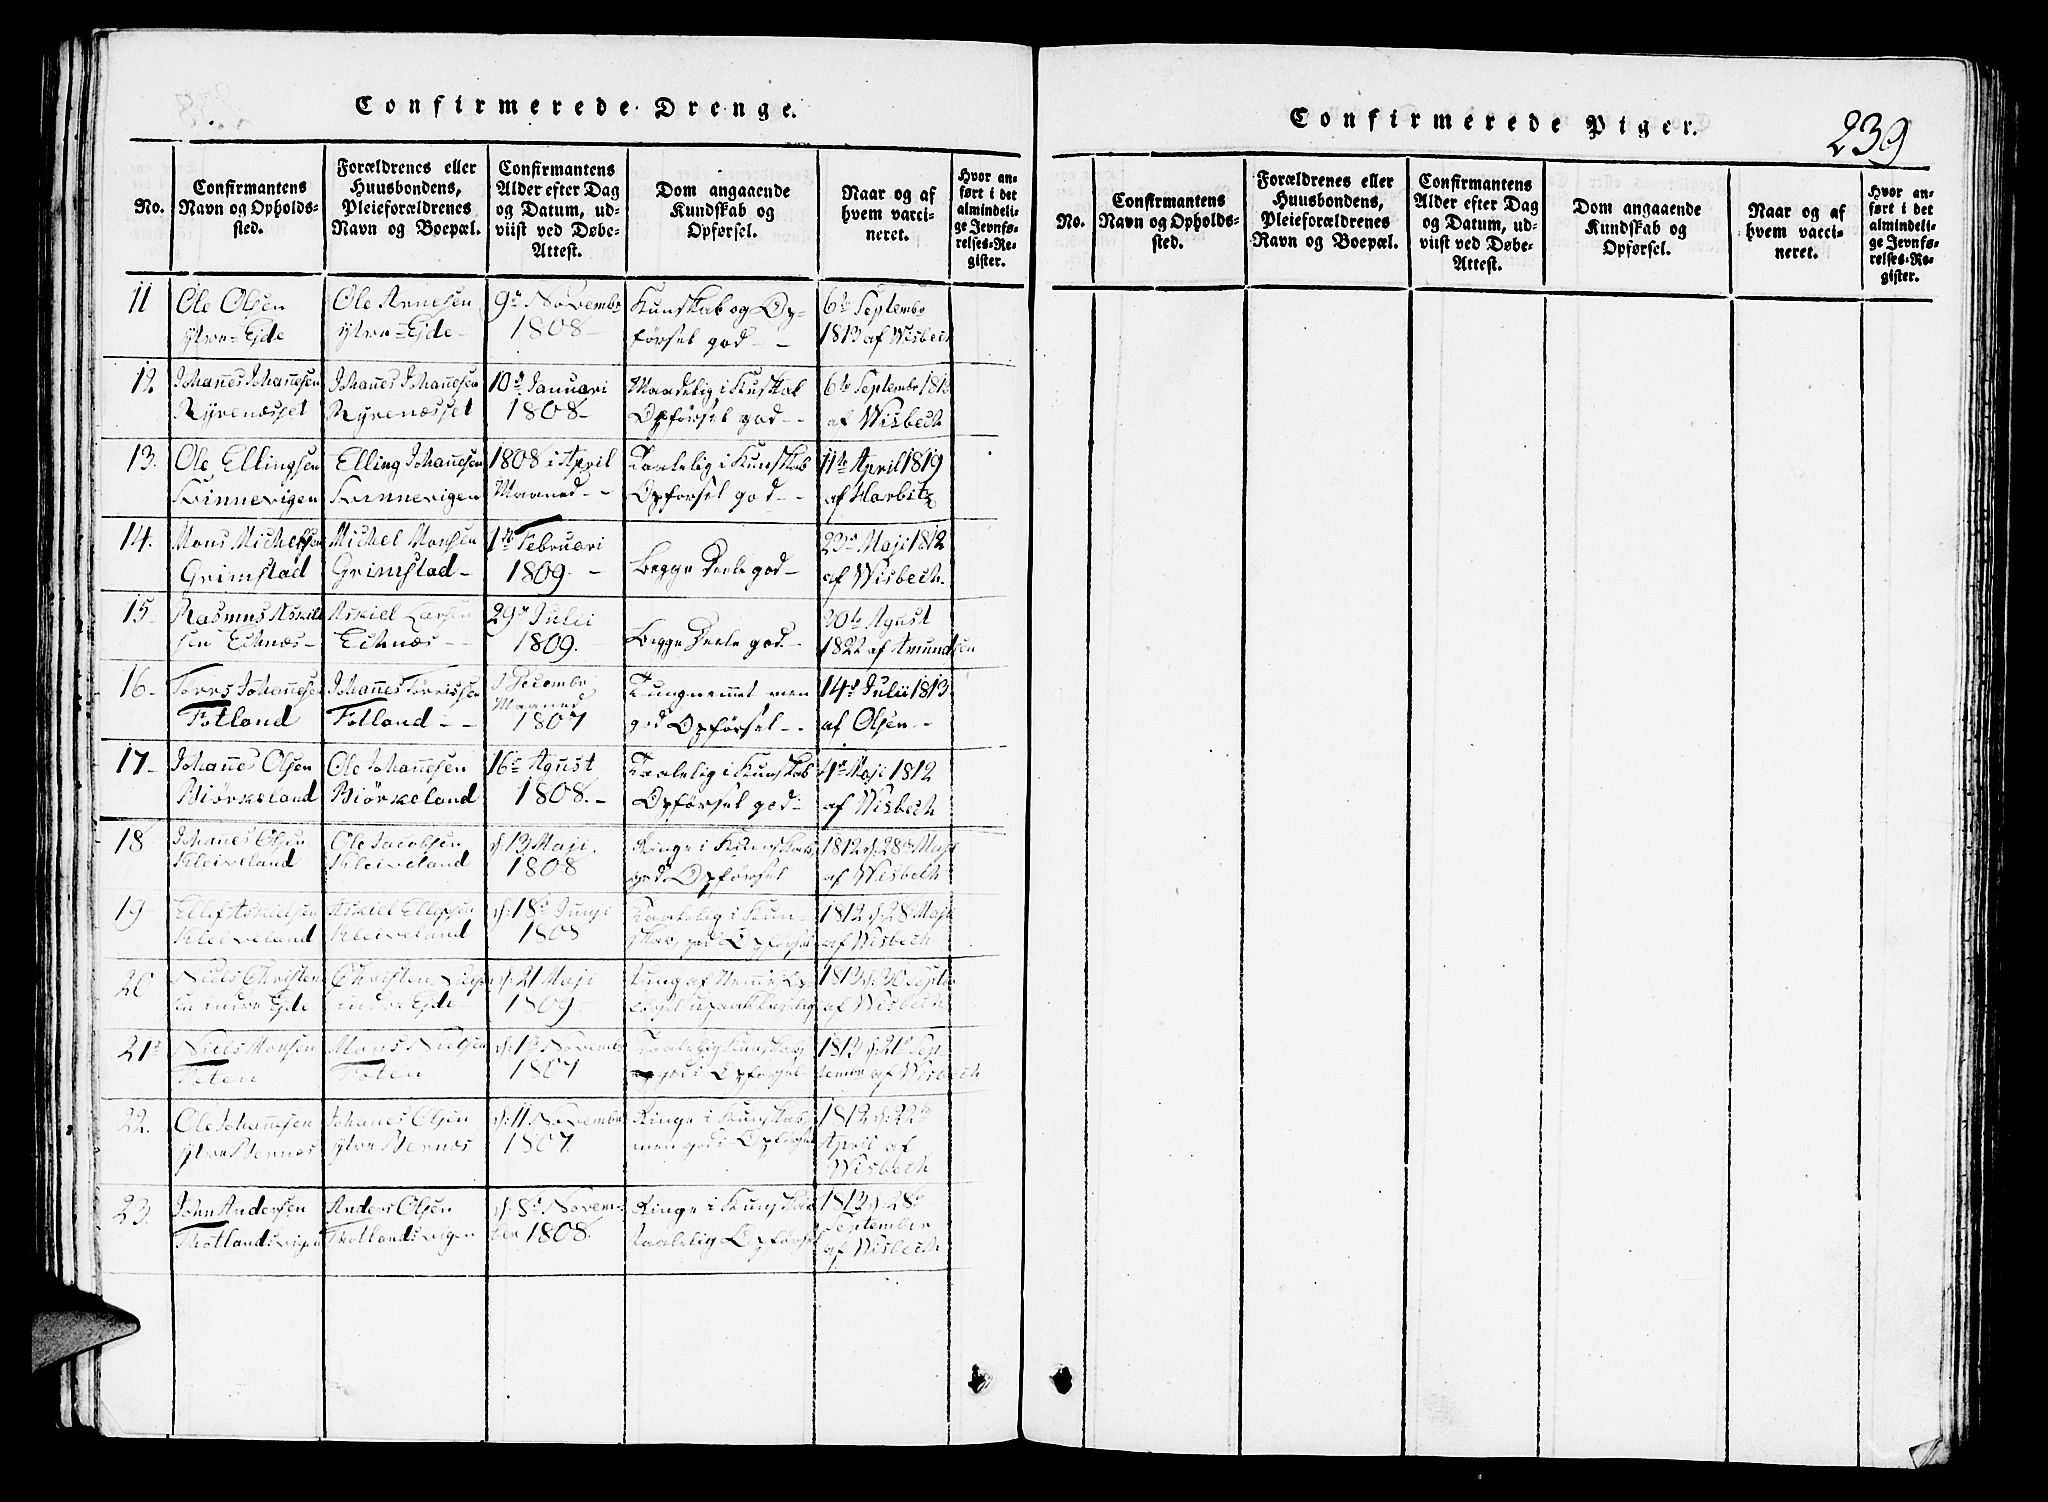 Confirmerede Drenge.
No.
Confirmantens
Navn og Opholds-
sted.
Forældrenes eller
Huusbondens,
Pleieforældrenes
Navn og Boepæl.
Confirmantens
Alder efter Dag
og Datum, ud-
viist ved Døbe-
Attest.
Dom angaaende
Kundskab og
Opførsel.
Naar og af
hvem vacci-
neret.
Hvor an-
ført i det
almindeli-
ge Jevnfø-
relses-Re-
gister.
11
Ole Olsen
ystre-Ejde
Ole Arnesen
ystre-Ejde-
9de Novembr
1808-
Kunskab og Op-
førsel god - -
6te Septembr
1813 af Wisbech
12
Johanes Johanesen
Ryrenesset
Johanes Johanesen
Ryrenesset
10de Januari
1808-
Maadelig i Kuskab
Opførsel god - -
6te Septembr 1813
af Wisbech
13.
Ole Ellingsen
Qvinnevigen
Elling Johanesen
Qvinnevigen
1808 i April
Maaned - -
Taalelig i Kunskab
Opførsel god - -
11te April 1819
af Harbitz
14.
Mons Michelsen
Grimstad
Michel Monsen
Grimstad-
1te Februari
1809. -
Begge Deele god-
29de Maji 1812
af Wisbech.
15-
Rasmus Askiel
sen Echnæs-
Askiel Larsen
Echnæs - -
29de Julii
1809.
Begge Deele god-
30te Agust
1822 af Amundsen
16-
Torres Johanesen
Fotland
Johanes Törrissen
Fotland - -
i Decembr
Maaned
1807
Tungnemmet men
god Opførsel - -
14de Julii 1813
af Olsen - -
17-
Johanes Olsen
Biörkeland
Ole Johanesen
Biörkeland
16de Agust
1808.-
Taalelig i Kunskab
Opførsel god -
1de Maji 1812
af Wisbech
18
Johanes Olsen
Kleiveland
Ole Jacobsen
Kleiveland
d: 13 Maji.
1808
Ringe i Kunskab,
god Opførsel
1812 d: 28de Maji
af Wisbech
19
Ellef Askielsen
Kleiveland
Askiel Ellefsen
Kleiveland
d: 18de Junji
1808
Taalelig i Kun-
skab, god Opførsel
1812 d: 28 Maji
af Wisbech
20
Niels Christen
sen indre Ejde
Christen Nielsen
indre Ejde
d: 21 Maji
1809-
tung af Nemme, Op
førsel upaaklagelig
1813 d: 30 Septb
af Wisbech
21de
Niels Monsen
Toten
Mons Nielsen
Toten
d: 1te Novembr
1807
Taalelig Kunskab
god i Opførsel
1813 d: 21de Sep
tember af Wisbech
22.
Ole Johanesen
ystre Bernæs
Johanes Olsen
ystre Bernæs
d: 11 Novembr
1807.
Ringe i Kunskab,
men god i Opførsel
1812 d: 22de
April af
Wisbech
23.
John Andersen
Thotlandsvigen
Anders Olsen
Thotlandsvigen
d: 8de Novem-
ber 1808.
Ringe i Kunskab
taalelig Opførsel
1813 d: 28de
September
af Wisbech
Confirmerede Piger.
239
No.
Confirmantens
Navn og Opholds-
sted.
Forældrenes eller
Huusbondens,
Pleieforældrenes
Navn og Boepæl.
Confirmantens
Alder efter Dag
og Datum, ud-
viist ved Døbe-
Attest.
Dom angaaende
Kundskab og
Opførsel.
Naar og af
hvem vacci-
neret.
Hvor an-
ført i det
almindeli-
ge Jevnfø-
relses-Re-
gister.